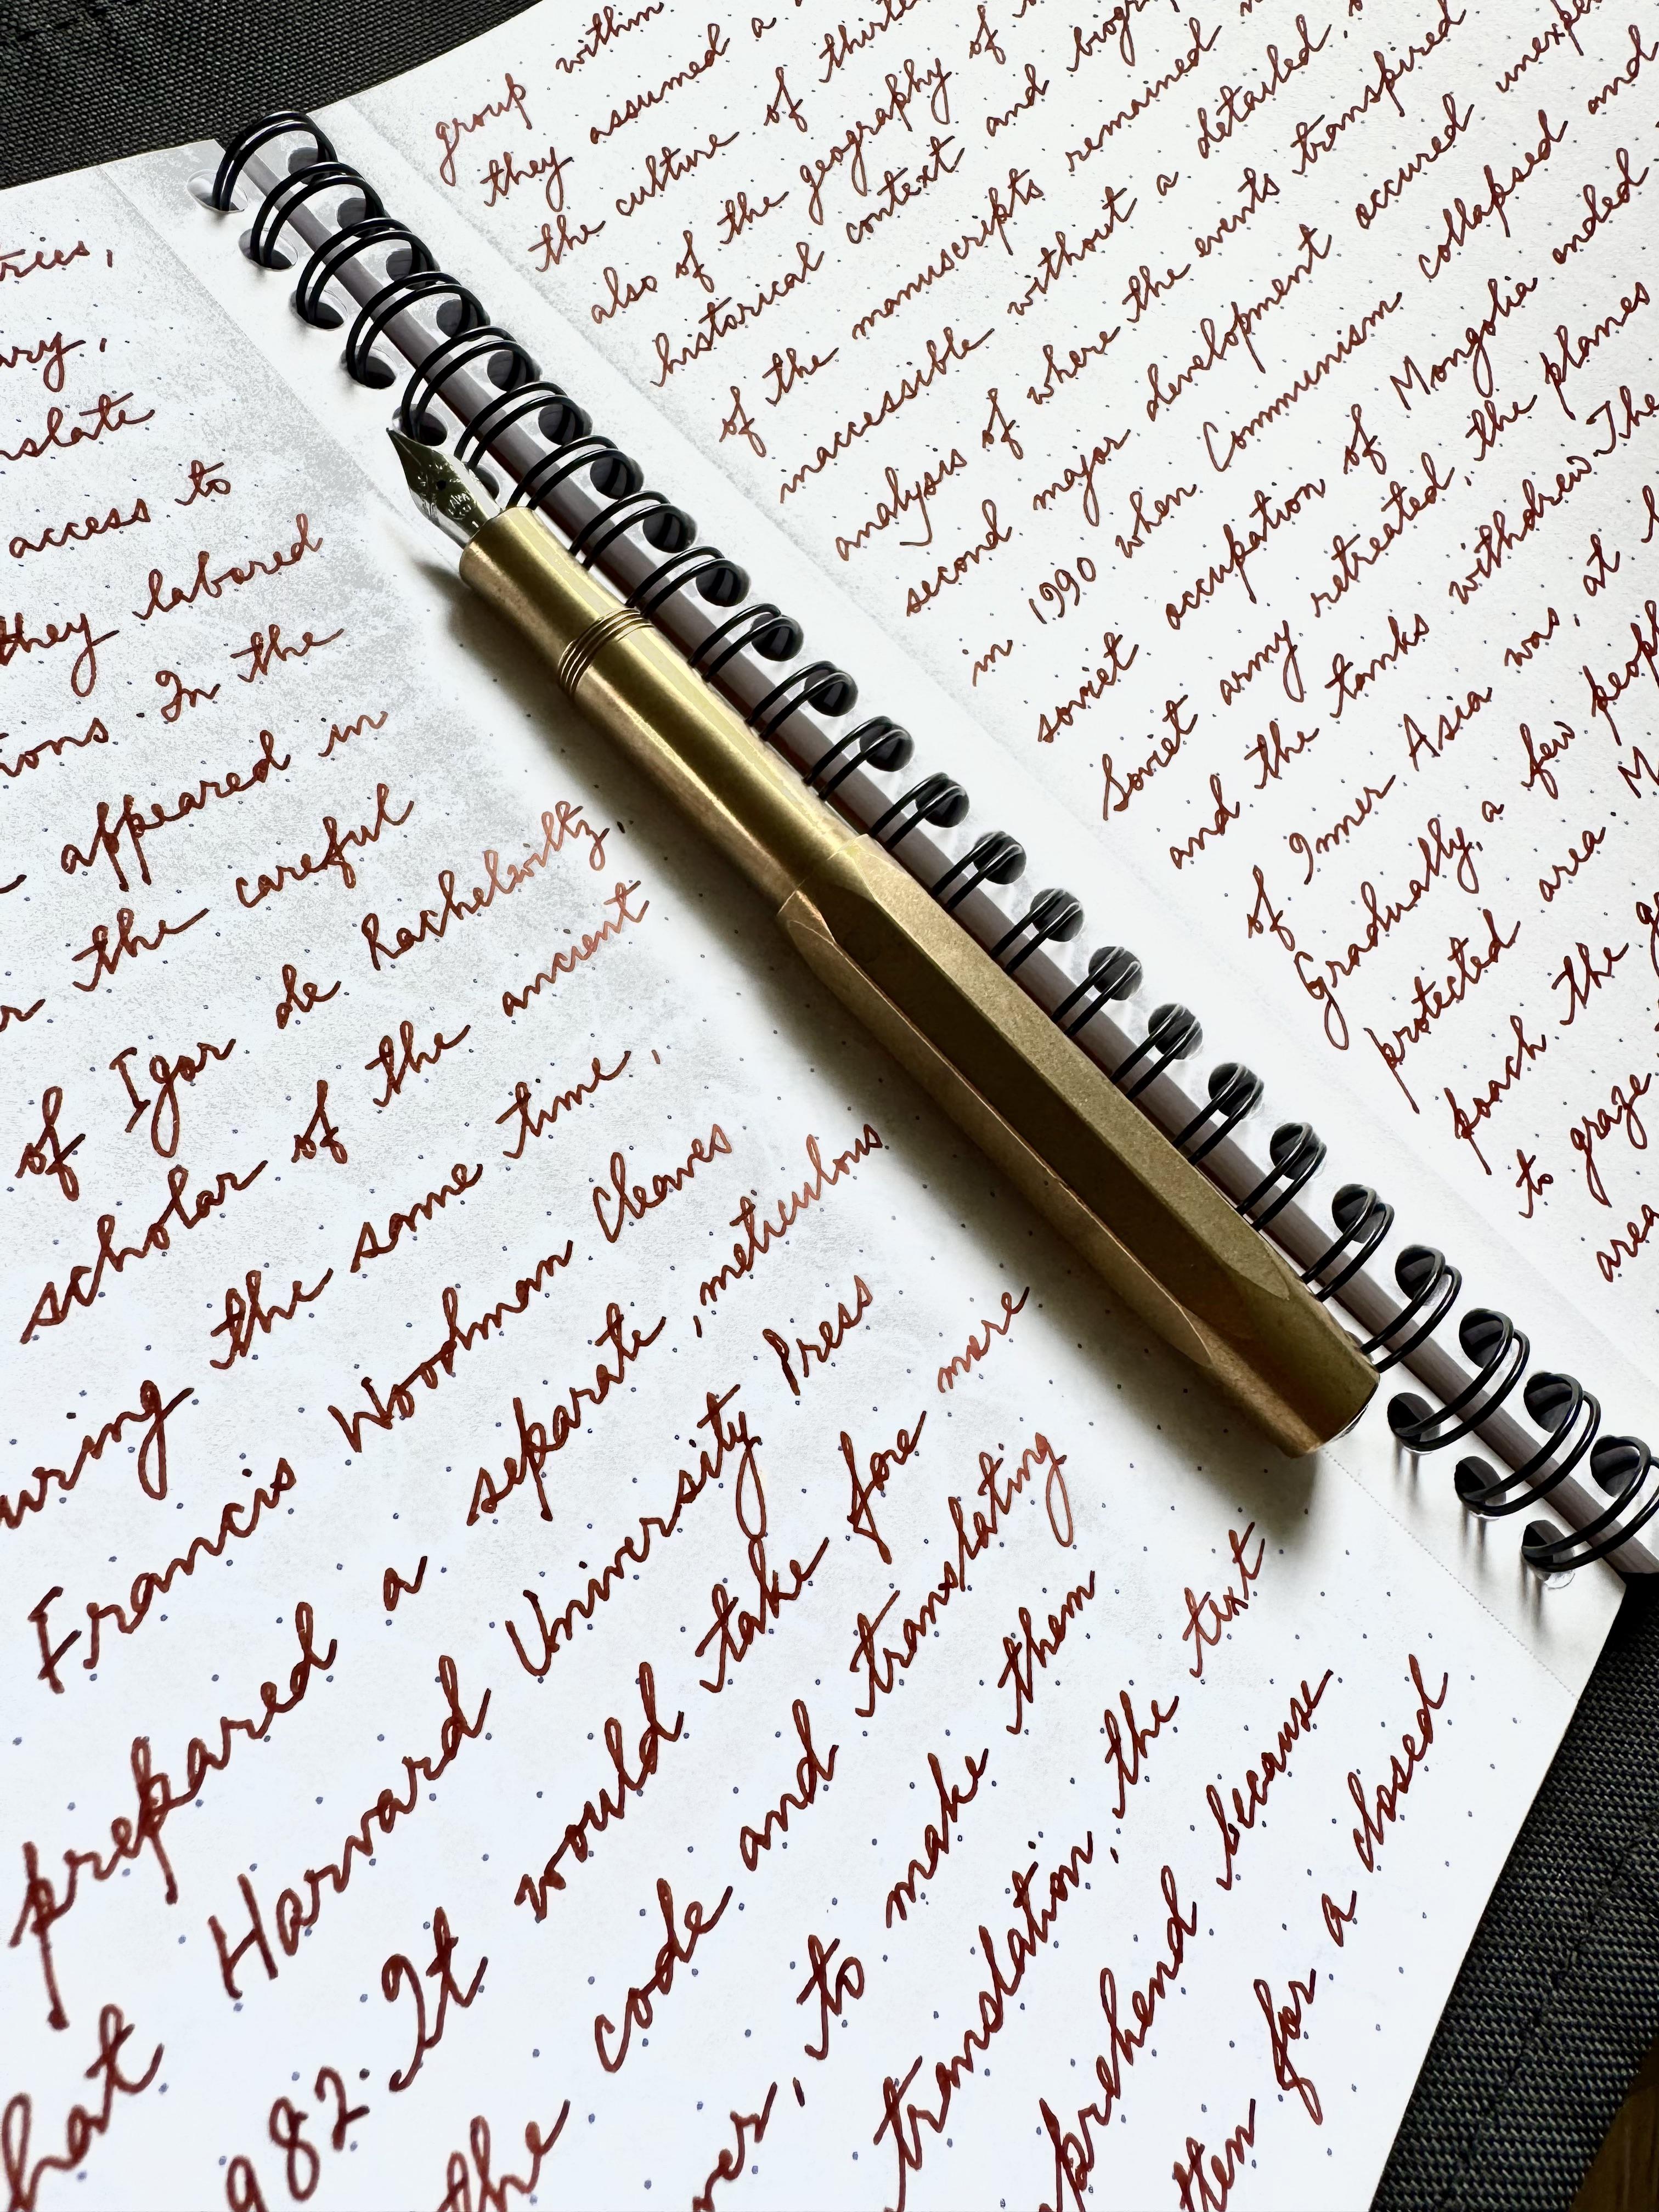 access to
they labored
In the
appeared in
the careful
of Igor de Rachelwiltz,
scholar of the ancient
the same time,
Francis Woodman Cleaves
prepared a separate, meticulous
Harvard University Press
982. It would take fore more
the code and translating
to make them
translation, the text
because
for a closed
group within
they assumed a
the culture of
also of the geography of
historical context and
of the manuscripts remained
inaccessible without a detailed,
analysis of where the events transpired
second major development occured
in 1990 when Communism collapsed and
soviet occupation of Mongolia ended
Soviet army retreated, the planes
and the tanks withdrew. The
of Inner Asia was, at
Gradually, a few
protected area.
poach the
to graze
area